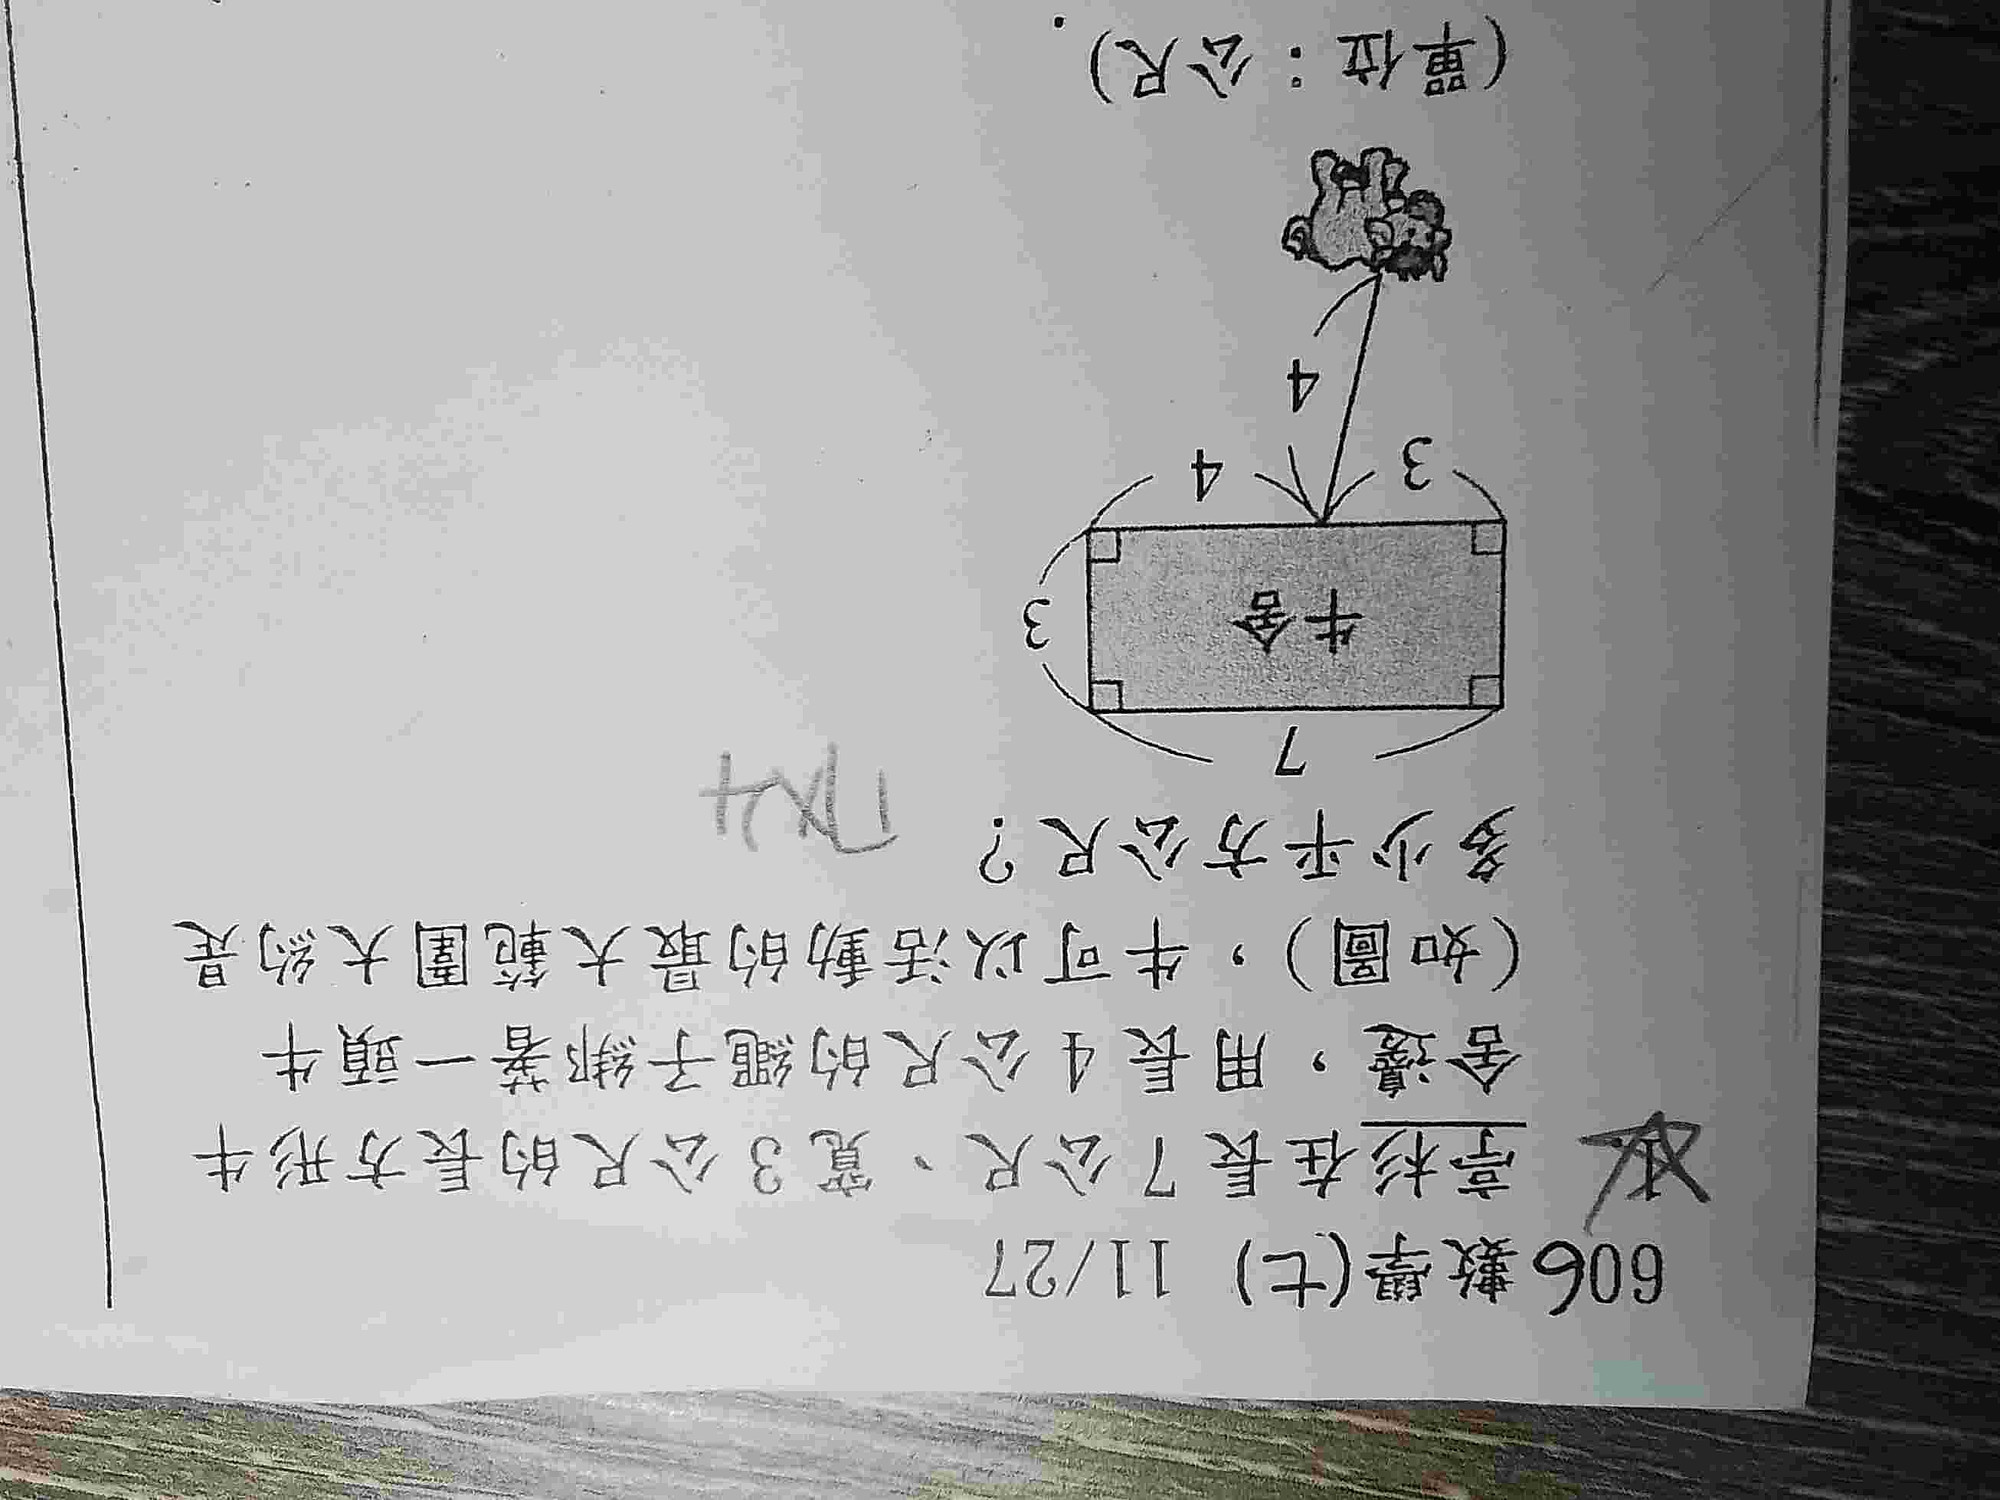 606 數學(七) 11/27
1. 亭杉在長7公尺、寬3公尺的長方形牛
舍邊，用長4公尺的繩子綁著一頭牛
(如圖)，牛可以活動的最大範圍大約是
多少平方公尺？
7
牛舍
3
3
4
4
(單位：公尺)